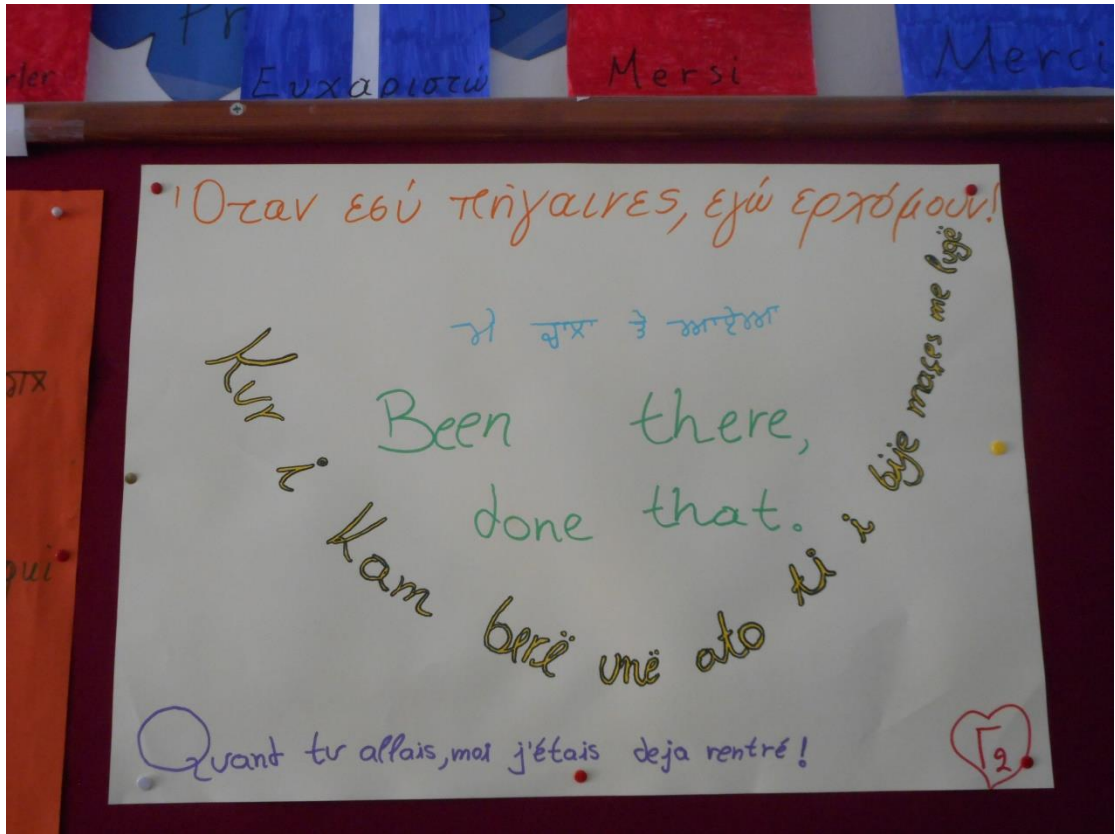 Ευχαριστώ
Mersi
Merci
Όταν εσύ πήγαινες, εγώ ερχόμουν!
Been there,
done that.
Kur i kam berë unë ato ti i bije maçes me lugë
Quant tu allais, moi j'étais deja rentré!
Γ2